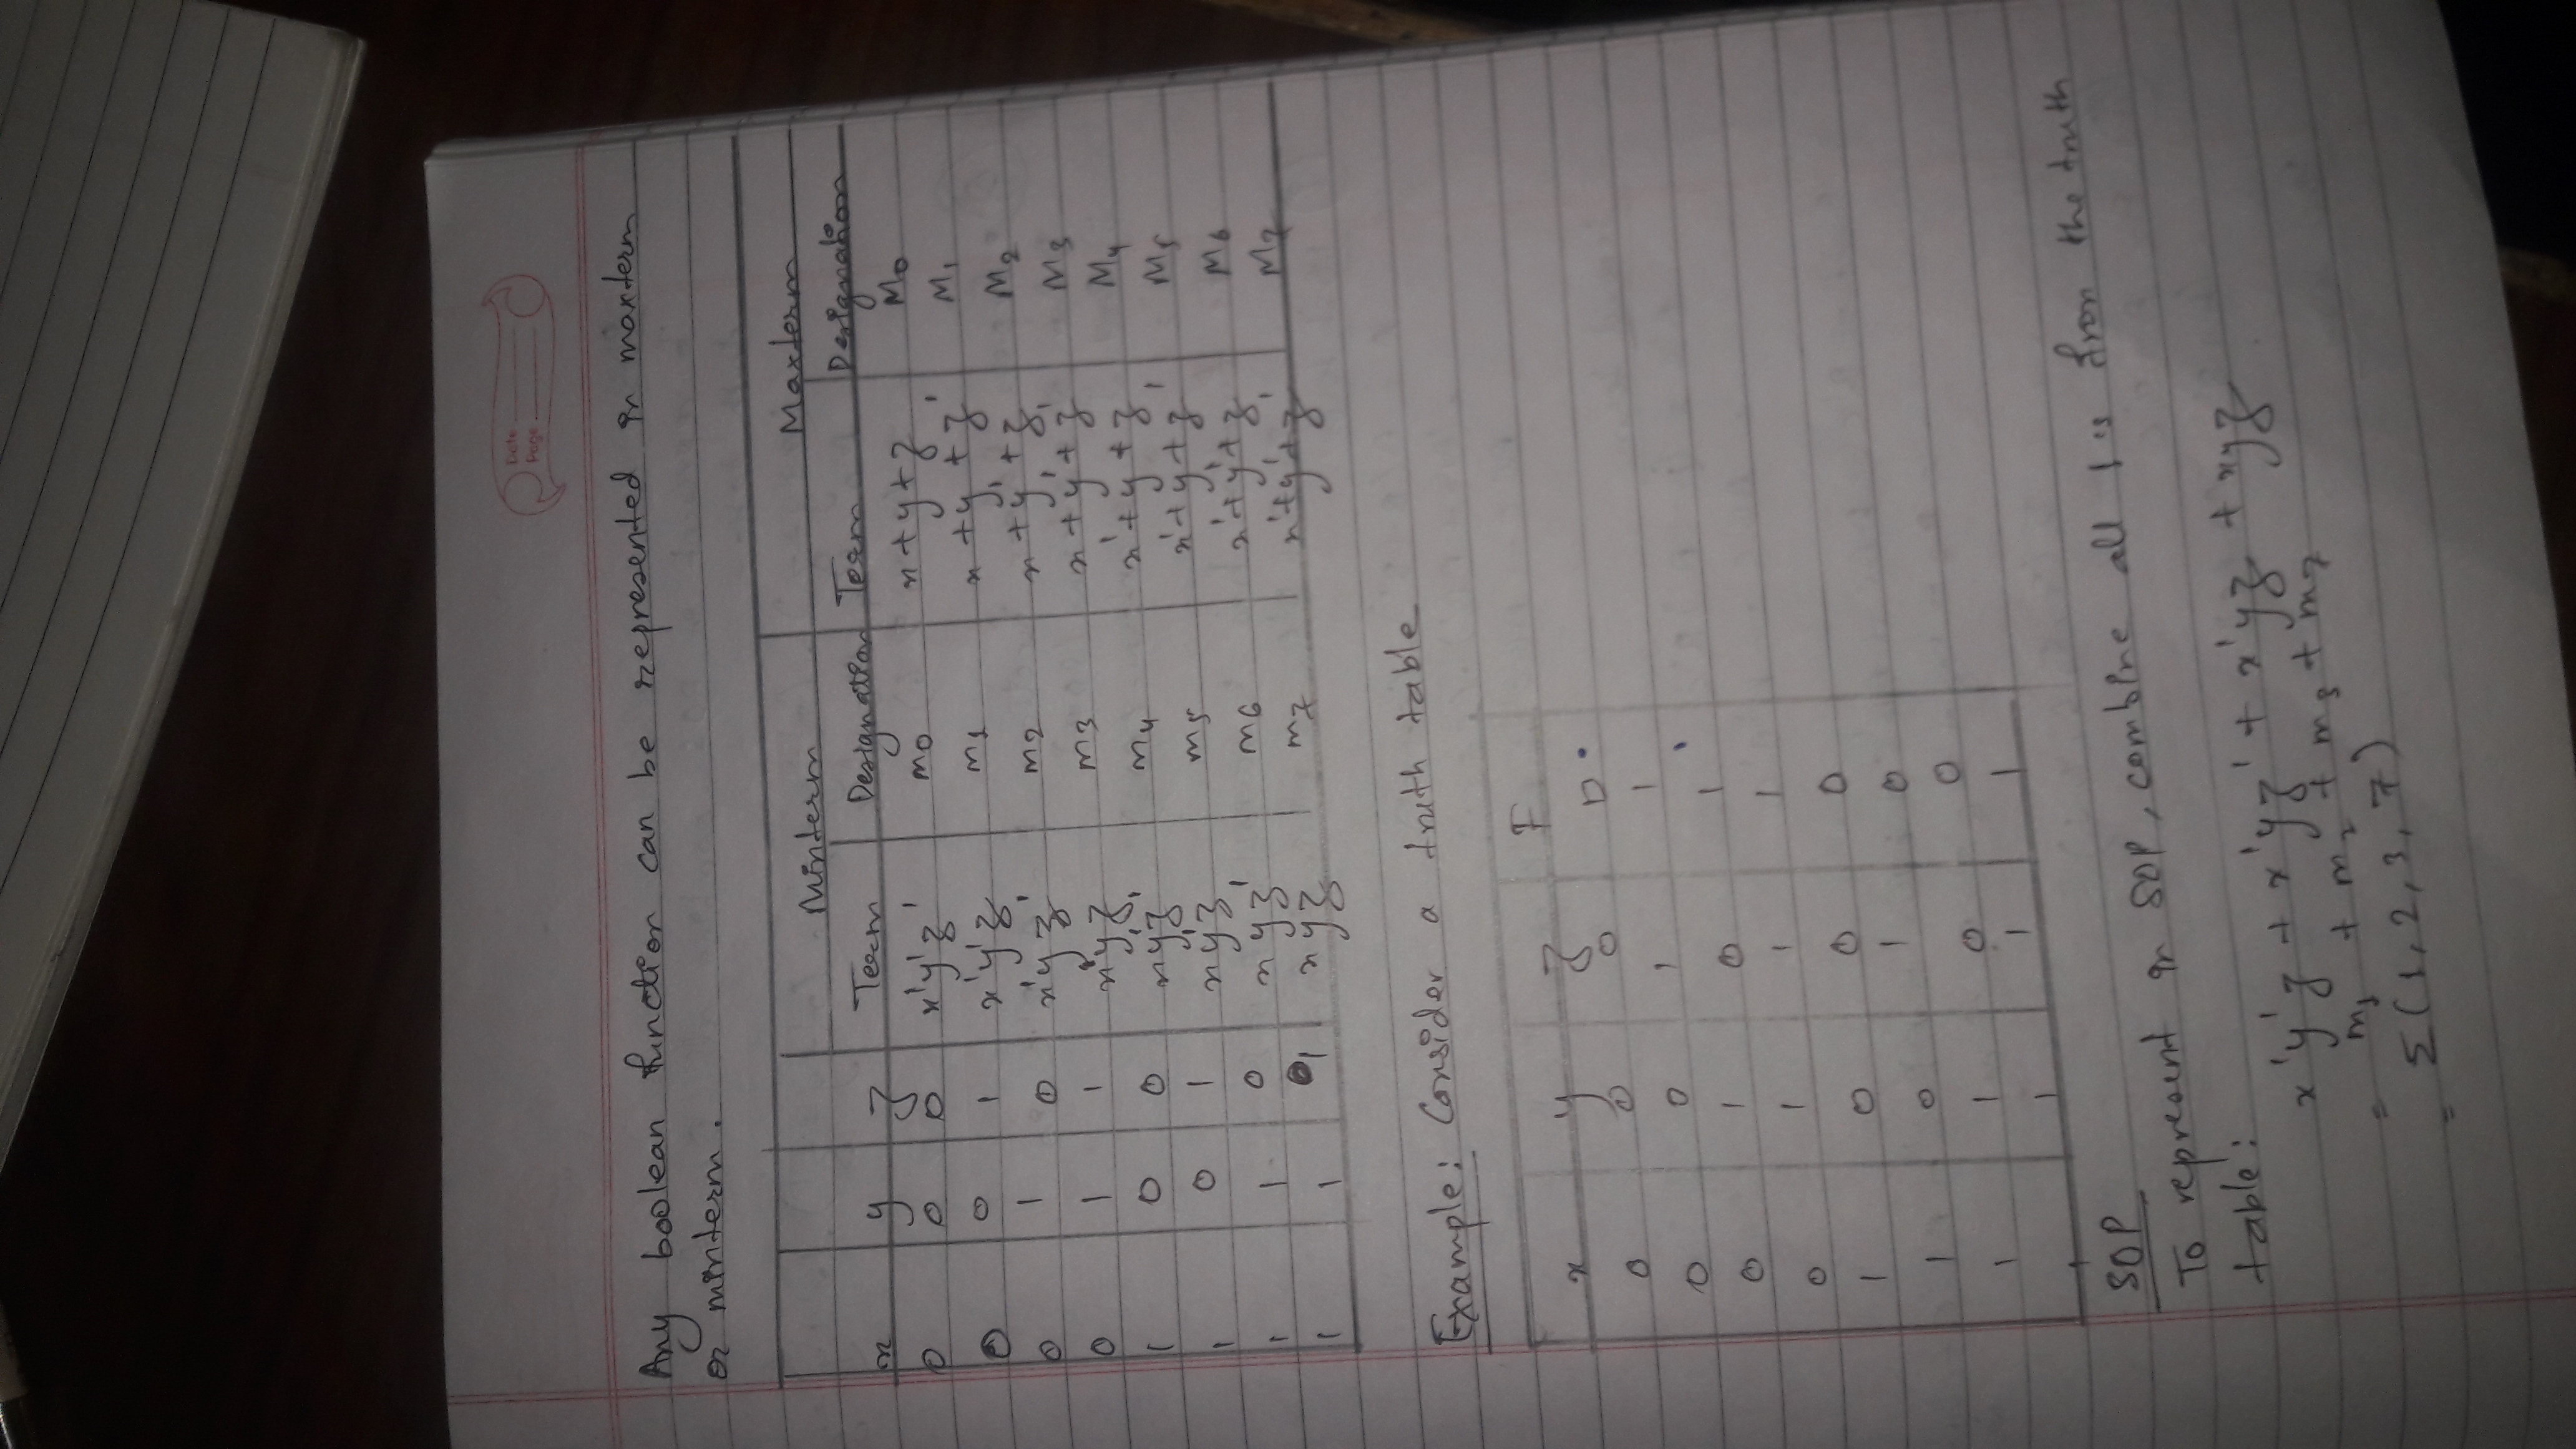 Date
Page
Any boolean function can be represented in maxterm
or minterm.
Minterm Maxterm
x y z Term Designation Term Designation
0 0 0 x'y'z' m0 x+y+z M0
0 0 1 x'y'z m1 x+y+z' M1
0 1 0 x'yz' m2 x+y'+z M2
0 1 1 x'yz m3 x+y'+z' M3
1 0 0 xy'z' m4 x'+y+z M4
1 0 1 xy'z m5 x'+y+z' M5
1 1 0 xyz' m6 x'+y'+z M6
1 1 1 xyz m7 x'+y'+z' M7
Example: Consider a truth table
x y z F
0 0 0 0
0 0 1 1
0 1 0 1
0 1 1 1
1 0 0 0
1 0 1 0
1 1 0 0
1 1 1 1
SOP
To represent in SOP, combine all 1's from the truth
table:
x'y'z + x'yz' + x'yz + xyz
= m1 + m2 + m3 + m7
= Σ(1, 2, 3, 7)